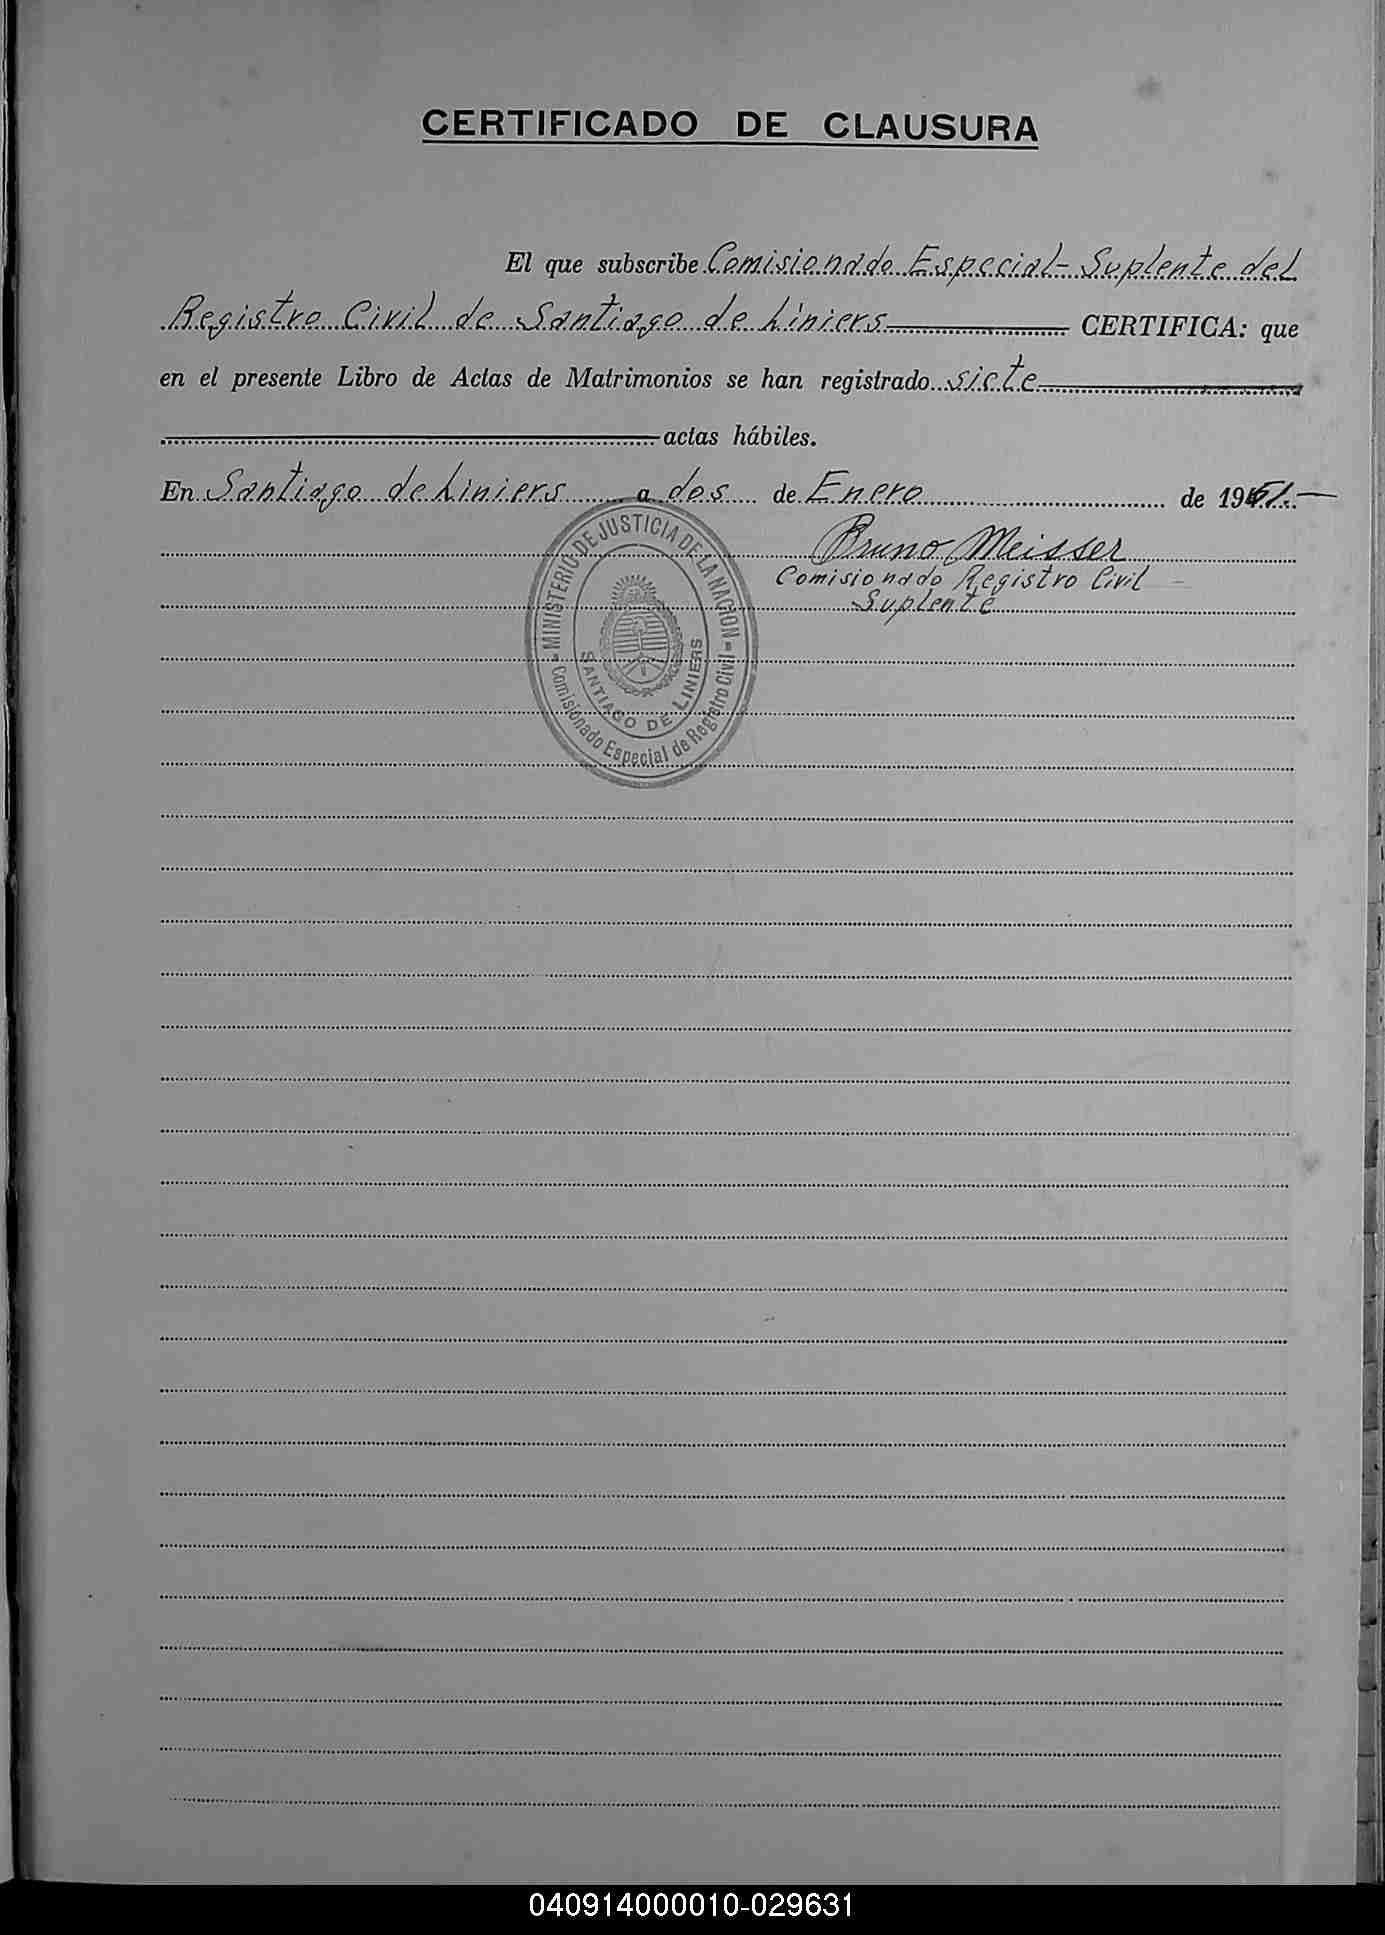 CERTIFICADO DE CLAUSURA
El que subscribe Comisionado Especial-Suplente del
Registro Civil de Santiago de Liniers CERTIFICA: que
en el presente Libro de Actas de Matrimonios se han registrado siete
actas hábiles.
En Santiago de Liniers a dos de Enero de 1951.-
Bruno Meisser
Comisionado Registro Civil
Suplente
MINISTERIO DE JUSTICIA DE LA NACION
SANTIAGO DE LINIERS
Comisionado Especial de Registro Civil
040914000010-029631